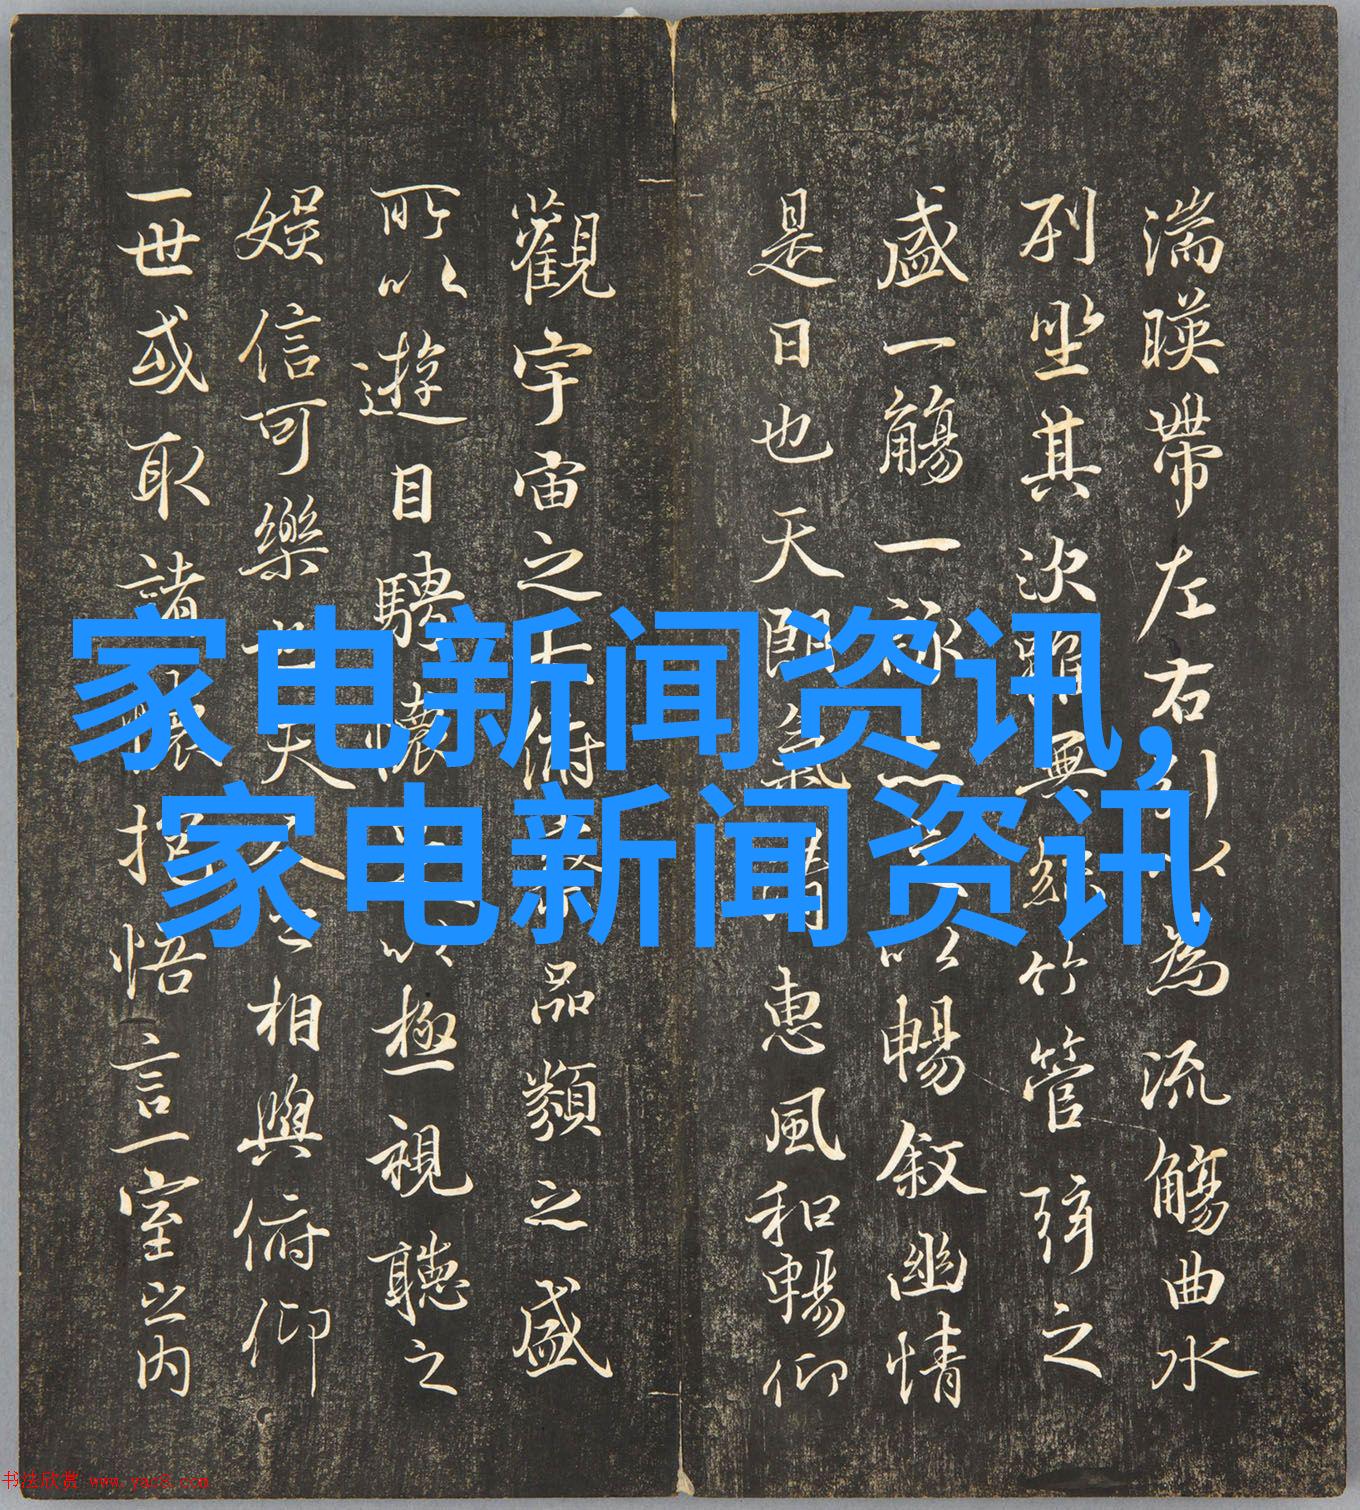 湍暎帶左右引以為流觴曲水
列坐其次雖無絲竹管弦之
盛一觴一詠以暢敘幽情
是日也天朗氣清惠風和暢仰
觀宇宙之大俯察品類之盛
所以遊目騁懷以極視聽之
娛信可樂也夫人之相與俯仰
一世或取諸懷抱悟言一室之內
家电新闻资讯,
家电新闻资讯
书法欣赏 www.yac8.com